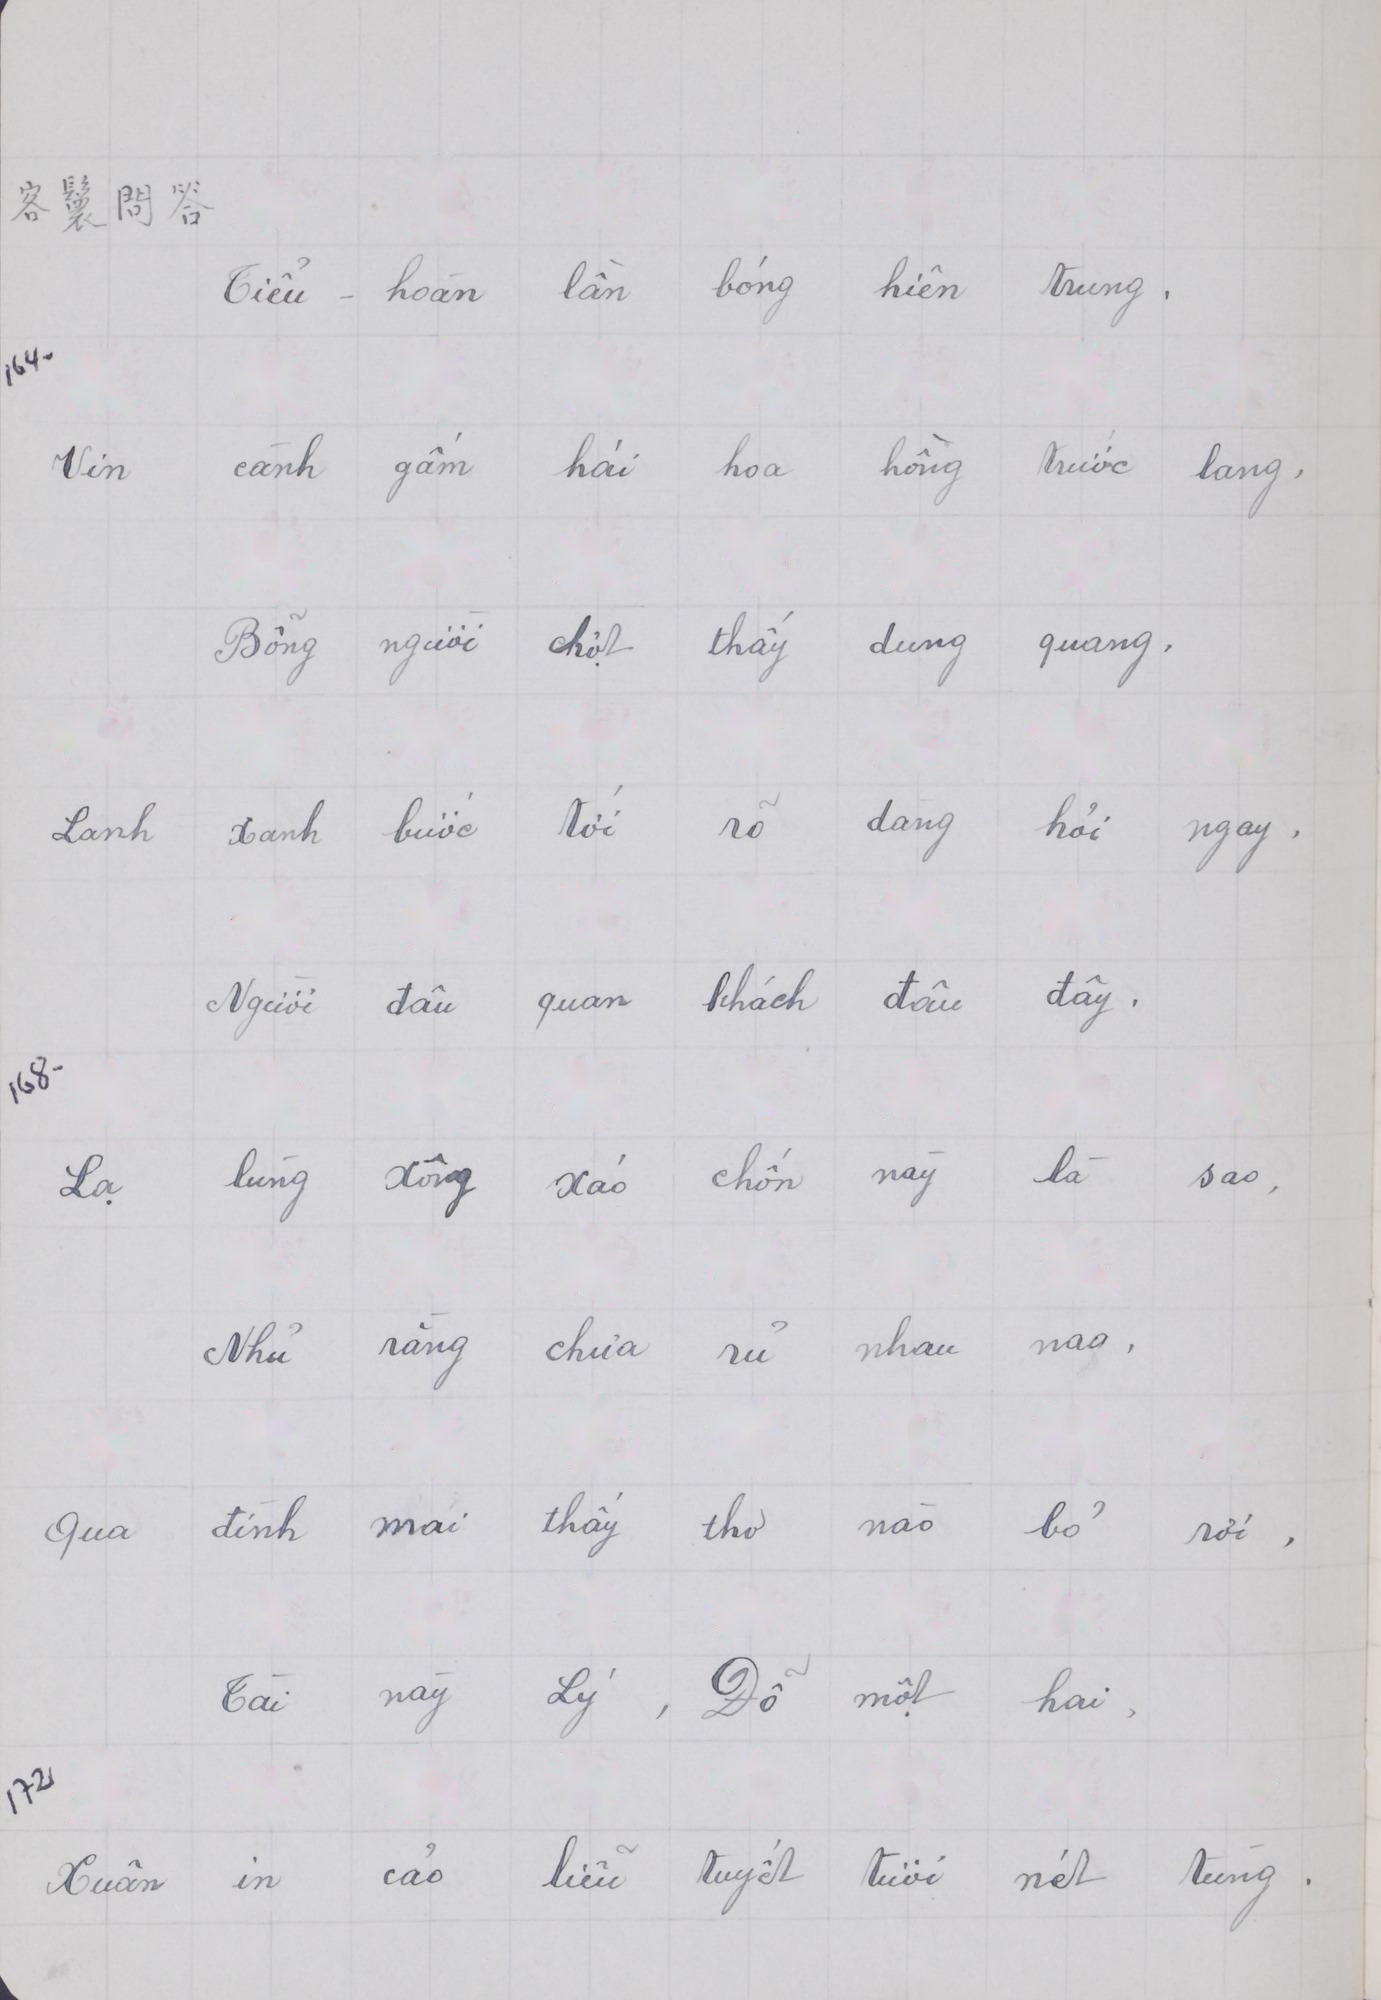 客鬟問答
Tiểu - hoàn lần bóng hiên trung,
164-
Vin cành gấm hái hoa hồng trước lang,
Bỗng người chợt thấy dung quang,
Lanh xanh bước tới rõ dàng hỏi ngay,
Người đâu quan khách đâu đây,
168-
Lạ lùng xông xáo chốn này là sao,
Nhủ rằng chưa rủ nhau nao,
Qua đình mai thấy thơ nào bỏ rơi,
Tài này Lý, Đỗ một hai,
172
Xuân in cảo liễu tuyết tươi nét tùng.